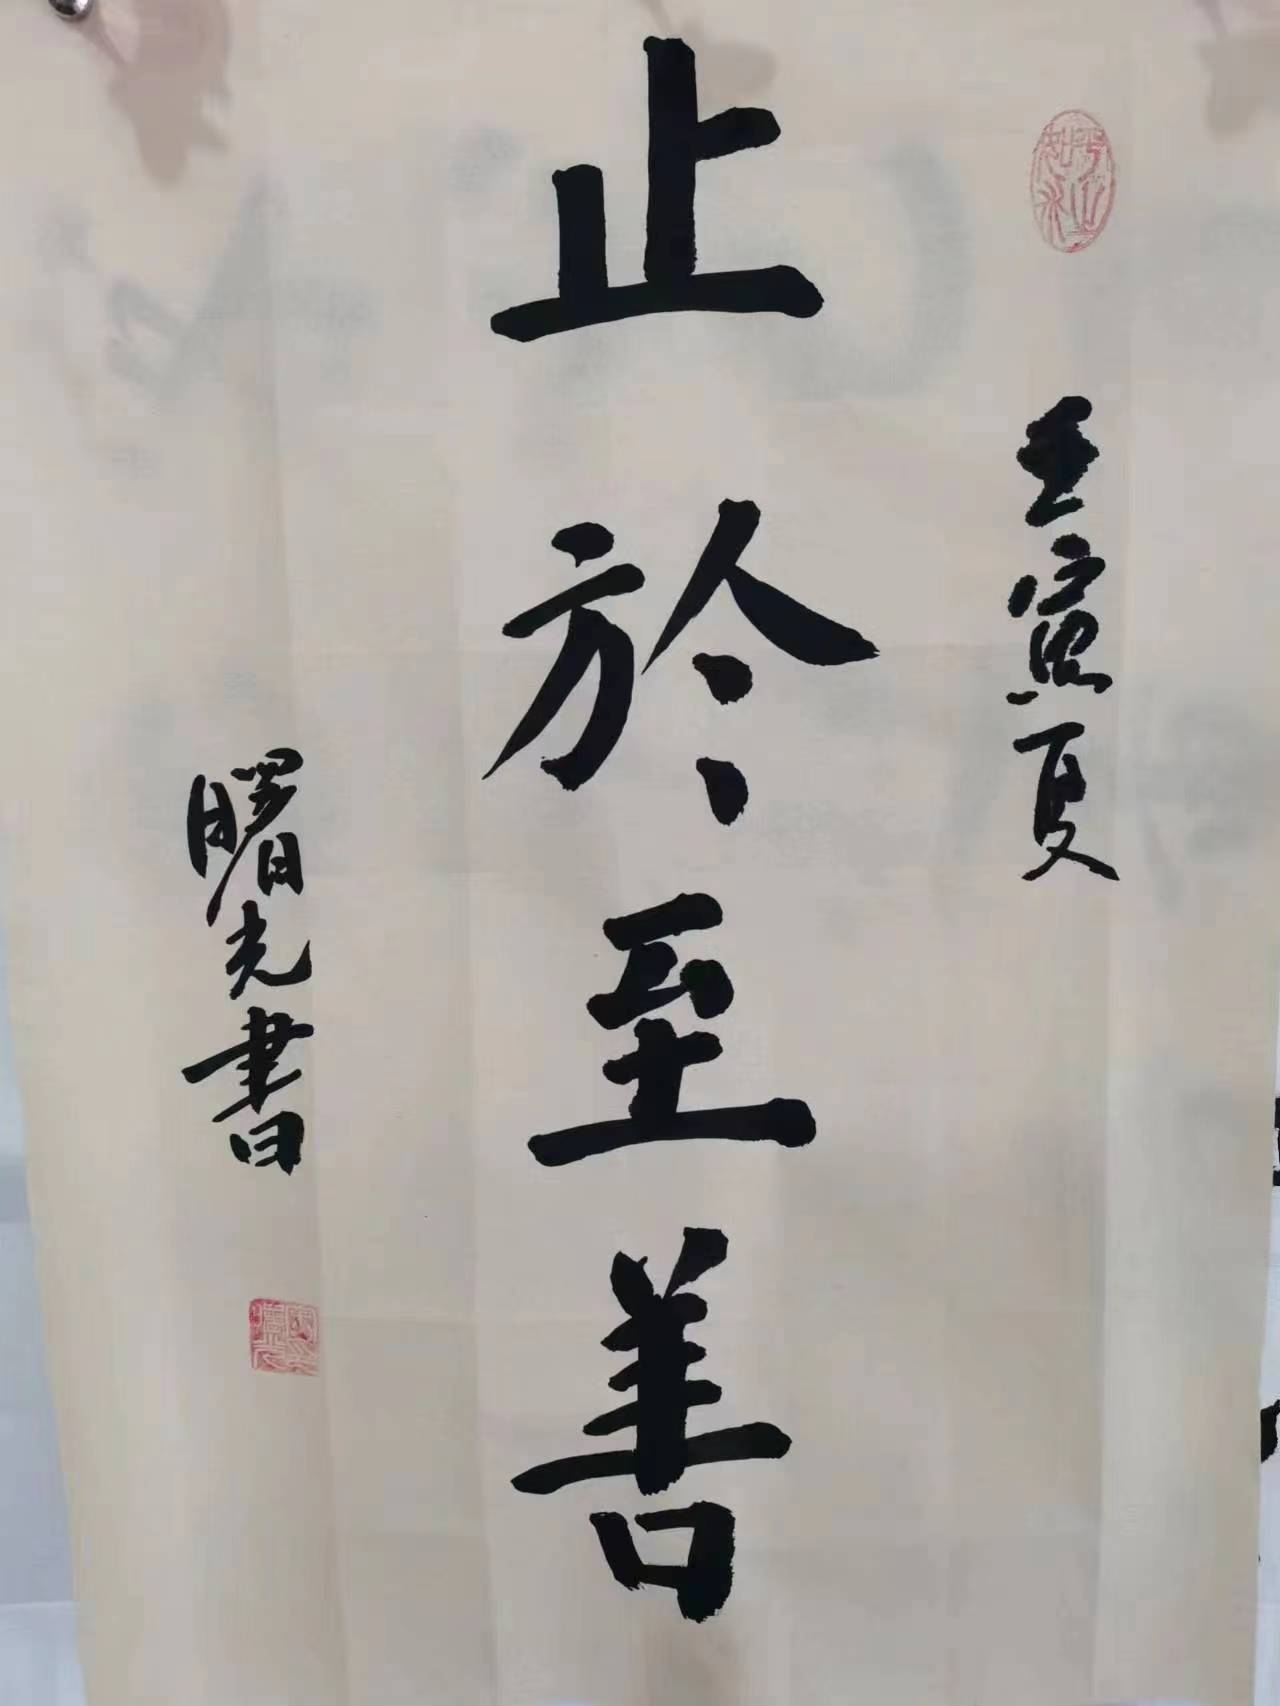 壬寅夏
止於至善
曙光書